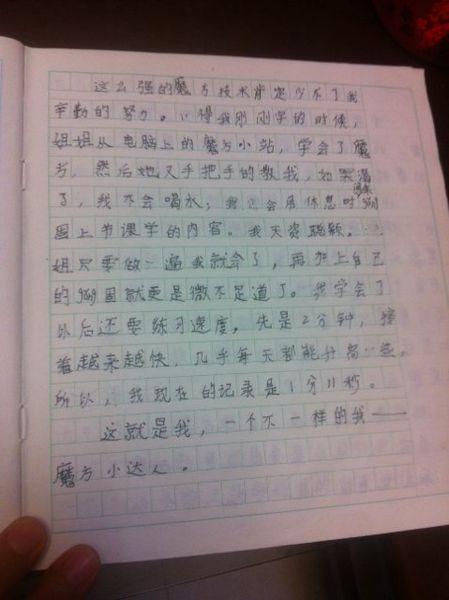 这么强的魔方技术肯定少不了我
辛勤的努力。记得我刚刚学的时候，
姐姐从电脑上的魔方小站，学会了魔
方，然后她又手把手的教我，她渴
了，我不会喝水；我还会用休息时
固上节课学的内容。我天资聪颖，
姐只要做一遍我就会了，再加上自己
的巩固就更是微不足道了。我学会了
以后还要练习速度，先是2分钟，接
着越来越快，几乎每天都能升高一些，
所以，我现在的记录是1分11秒。
这就是我，一个不一样的我——
魔方小达人。